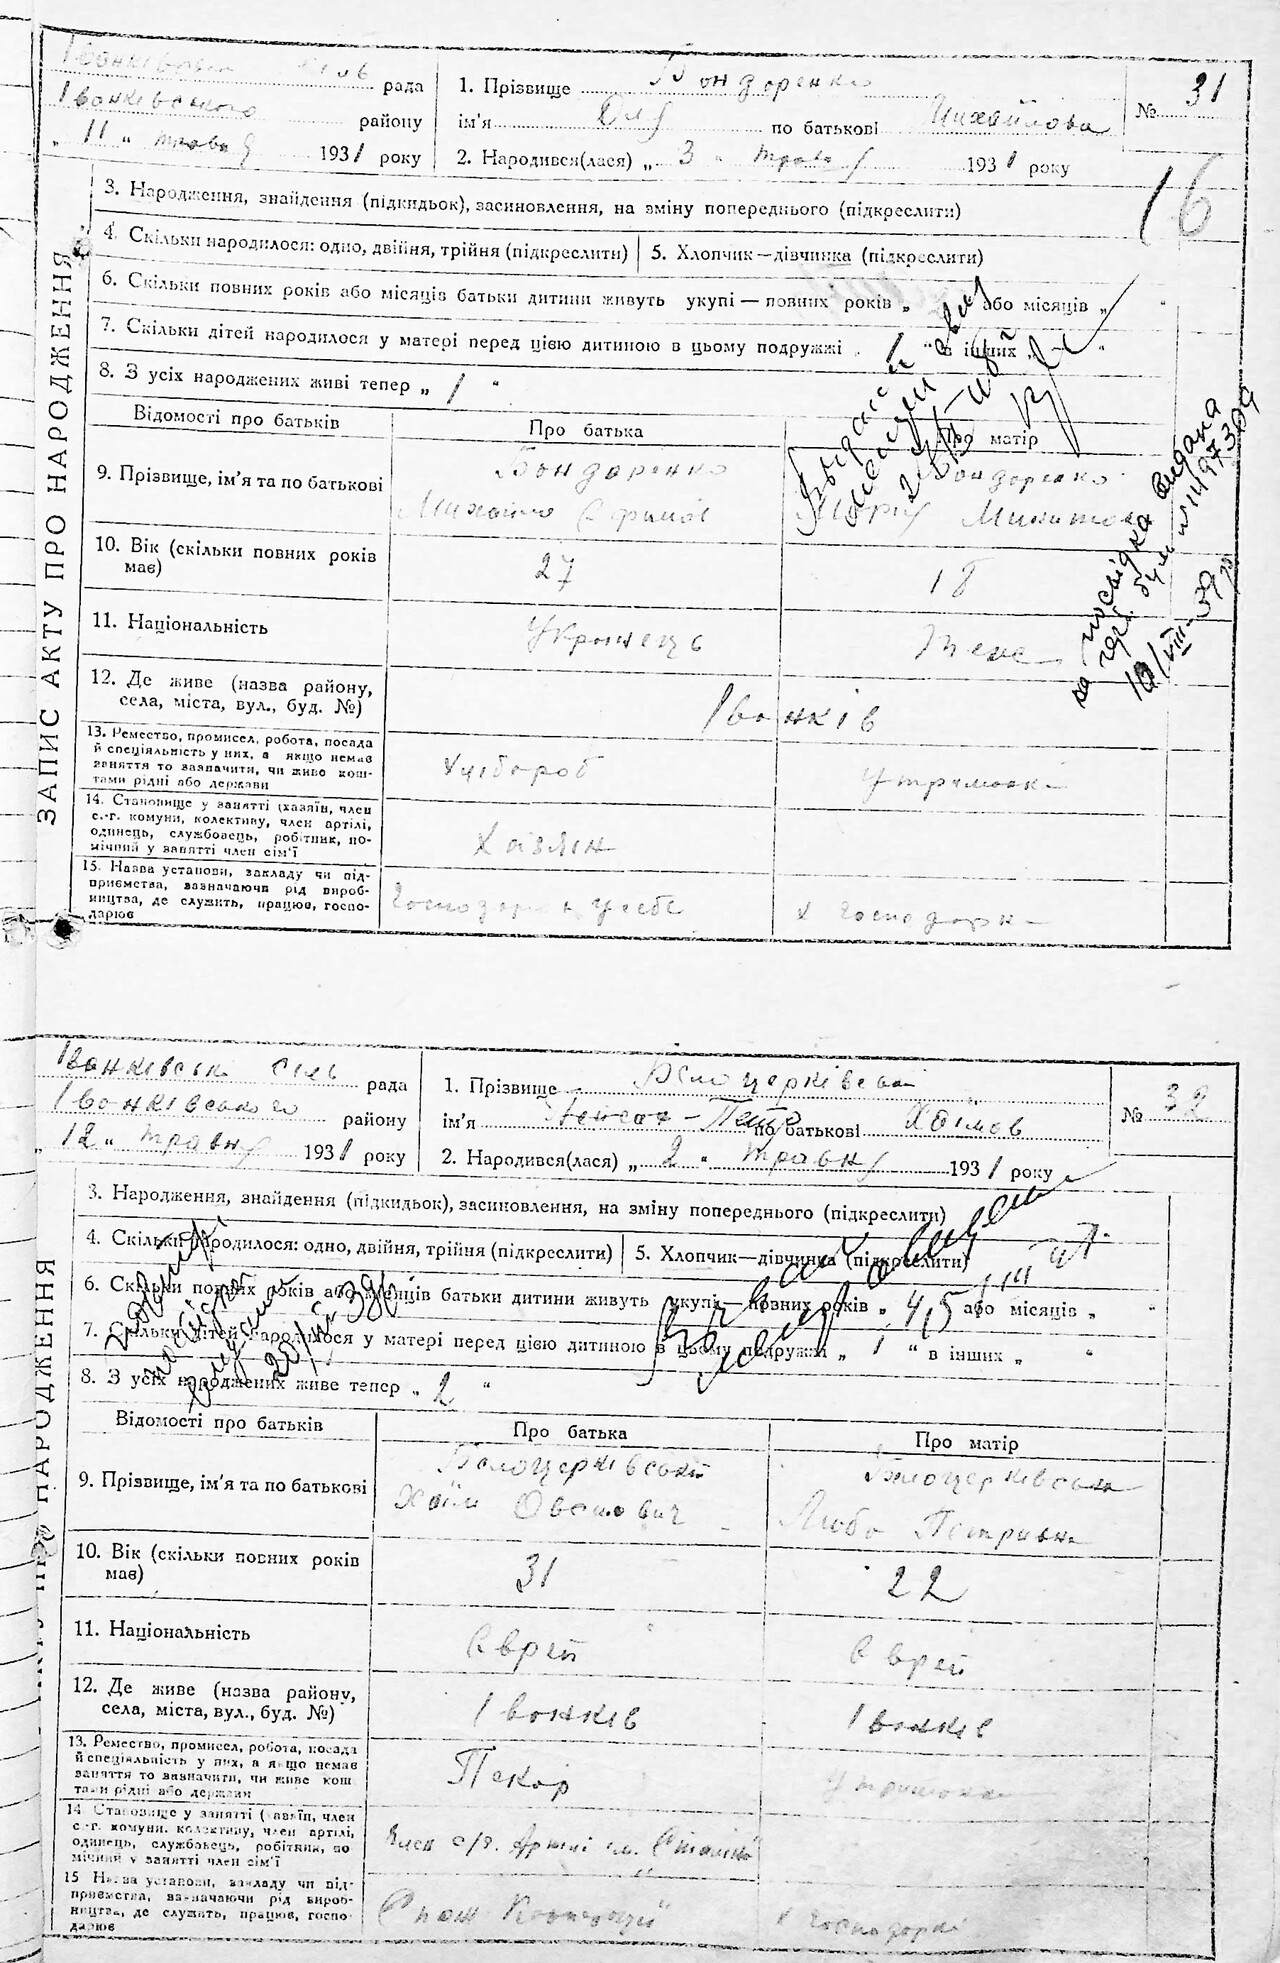 рада
Іванківського району
„ 11 „ травня 1931 року
1. Прізвище Бондаренко
ім'я Оля по батькові Михайлова
2. Народився(лася) „ 3 „ травня 1931 року
№ 31
16
ЗАПИС АКТУ ПРО НАРОДЖЕННЯ
3. Народження, знайдення (підкидьок), засиновлення, на зміну попереднього (підкреслити)
4. Скільки народилося: одно, двійня, трійня (підкреслити)
5. Хлопчик—дівчинка (підкреслити)
6. Скільки повних років або місяців батьки дитини живуть укупі — повних років „ або місяців „
7. Скільки дітей народилося у матері перед цією дитиною в цьому подружжі „ “ в інших „ — “
8. З усіх народжених живі тепер „ 1 “
Відомості про батьків
Про батька
Про матір
9. Прізвище, ім'я та по батькові
Бондаренко
Михайло
Бондаренко
10. Вік (скільки повних років має)
27
18
11. Національність
Українець
Теже
12. Де живе (назва району, села, міста, вул., буд. №)
Іванків
13. Ремество, промисел, робота, посада й спеціяльність у них, а якщо немає заняття то зазначити, чи живе коштами рідні або держави
Хлібороб
Утриманка
14. Становище у занятті (хазяїн, член с.-г. комуни, колективу, член артілі, одинець, службовець, робітник, помічний у занятті член сім'ї
Хазяїн
15. Назва установи, закладу чи підприємства, зазначаючи рід виробництва, де служить, працює, господарює
посвідка видана
№ 1497309
10/VIII-39 р
Іванківськ сіль рада
Іванківського району
„ 12 „ травня 1931 року
1. Прізвище Білоцерківськ
ім'я по батькові Хаімов
2. Народився(лася) „ 2 „ травня 1931 року
№ 32
НАРОДЖЕННЯ
3. Народження, знайдення (підкидьок), засиновлення, на зміну попереднього (підкреслити)
4. Скільки народилося: одно, двійня, трійня (підкреслити)
5. Хлопчик—дівчинка (підкреслити)
6. Скільки повних років або місяців батьки дитини живуть укупі — повних років „ 4,5 або місяців „ “
7. Скільки дітей народилося у матері перед цією дитиною в цьому подружжі „ 1 “ в інших „ “
8. З усіх народжених живе тепер „ 2 “
Відомості про батьків
Про батька
Про матір
9. Прізвище, ім'я та по батькові
Білоцерківський
Хаїм
Білоцерківськ
Люба Петрівна
10. Вік (скільки повних років має)
31
22
11. Національність
Єврей
Єврей
12. Де живе (назва району, села, міста, вул., буд. №)
Іванків
Іванків
13. Ремество, промисел, робота, посада й спеціяльність у них, а якщо немає заняття то зазначити, чи живе коштами рідні або держави
Пекар
Утриманка
14. Становище у занятті (хазяїн, член с.-г. комуни, колективу, член артілі, одинець, службовець, робітник, помічний у занятті член сім'ї
15. Назва установи, закладу чи підприємства, зазначаючи рід виробництва, де служить, працює, господарює